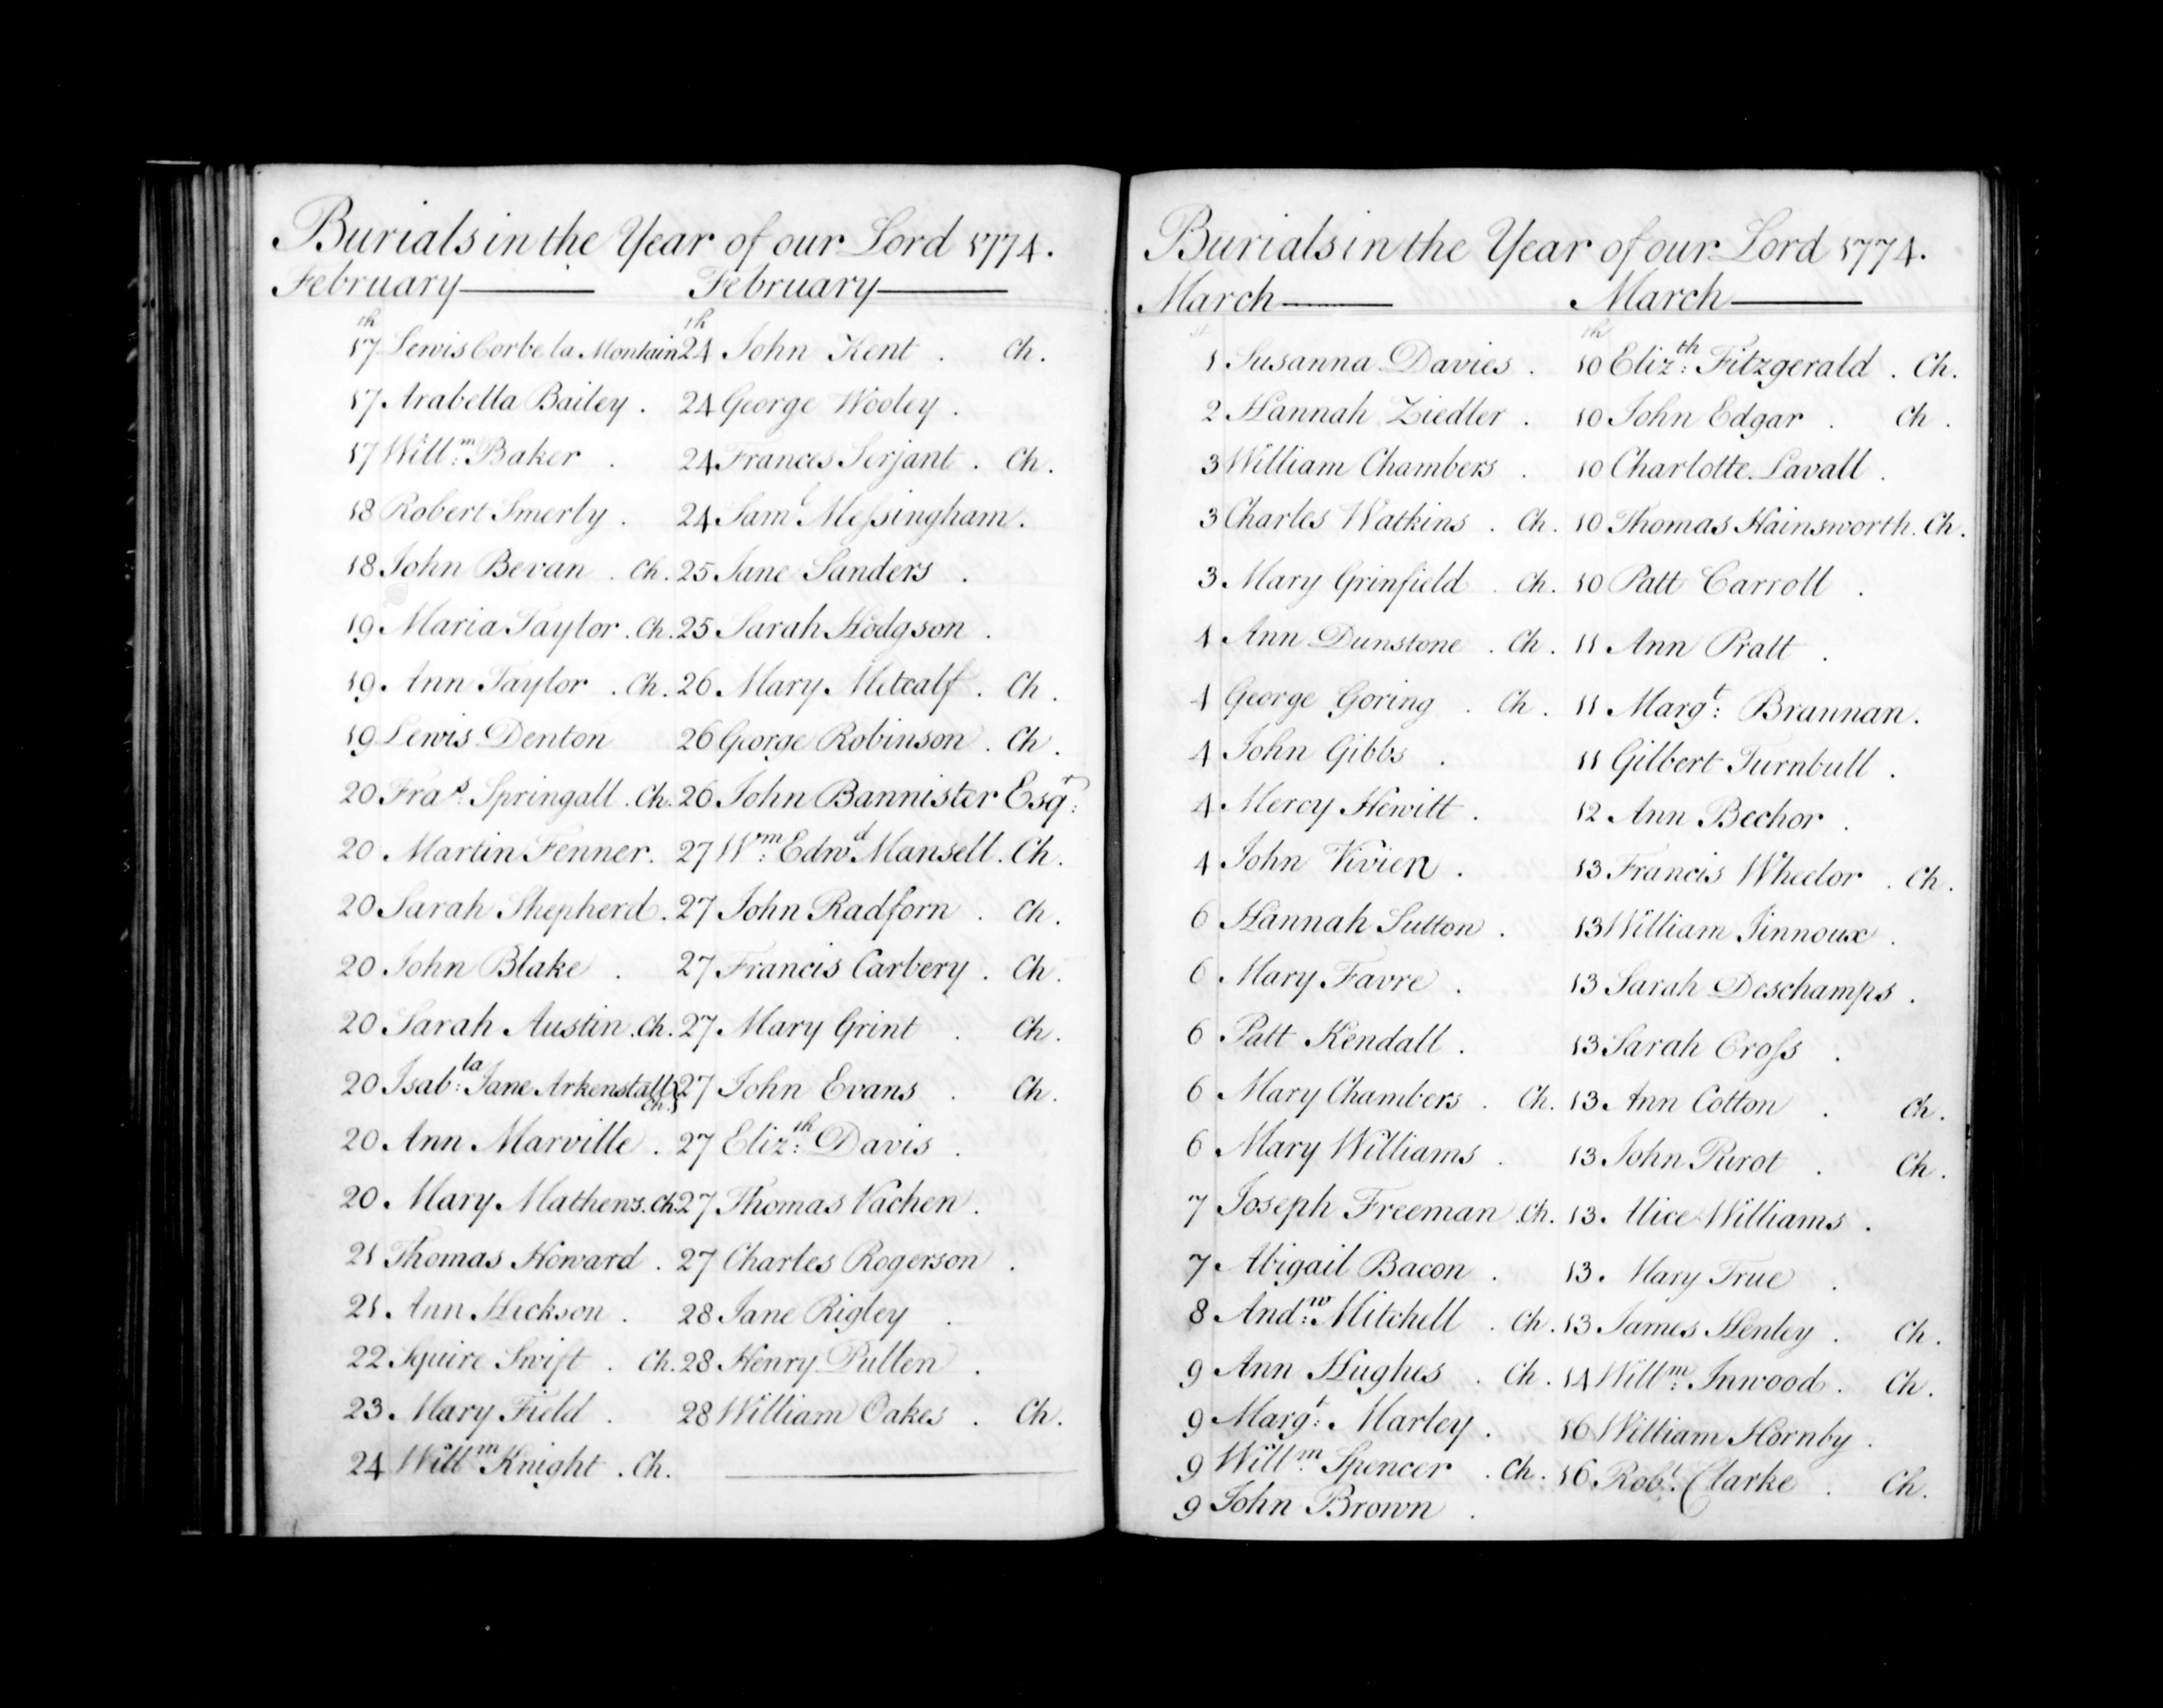 Burials in the Year of our Lord 1774.
February
17th Lewis Corbe la Montain
17 Arabella Bailey.
17 Willm: Baker.
18 Robert Smerly.
18 John Bevan. Ch.
19 Maria Taylor. Ch.
19. Ann Taylor. Ch.
19 Lewis Denton
20 Fras: Springall. Ch.
20 Martin Fenner.
20 Sarah Shepherd.
20 John Blake.
20 Sarah Austin. Ch.
20 Isabla: Jane Arkenstall
Ch.
20 Ann Marville.
20. Mary Mathews. Ch
21 Thomas Howard.
21. Ann Hickson.
22 Squire Swift. Ch.
23. Mary Field.
24 Willm Knight. Ch.
February
24th John Kent. Ch.
24 George Wooley.
24 Frances Serjant. Ch.
24 Saml Messingham.
25 Jane Sanders.
25 Sarah Hodgson.
26 Mary Metcalf. Ch.
26 George Robinson. Ch.
26 John Bannister Esqr:
27 Wm: Edwd Mansell. Ch.
27 John Radforn. Ch.
27 Francis Carbery. Ch.
27 Mary Grint. Ch.
27 John Evans. Ch.
27 Elizth: Davis.
27 Thomas Vachen.
27 Charles Rogerson.
28 Jane Rigley.
28 Henry Pullen.
28 William Oakes. Ch.
Burials in the Year of our Lord 1774.
March
1st Susanna Davies.
2 Hannah Ziedler.
3 William Chambers.
3 Charles Watkins. Ch.
3 Mary Grinfield. Ch.
4 Ann Dunstone. Ch.
4 George Goring. Ch.
4 John Gibbs.
4 Mercy Hewitt.
4 John Vivien.
6 Hannah Sutton.
6 Mary Favre.
6 Patt Kendall.
6 Mary Chambers. Ch.
6 Mary Williams.
7 Joseph Freeman. Ch.
7 Abigail Bacon.
8 Andw: Mitchell. Ch.
9 Ann Hughes. Ch.
9 Margt: Marley.
9 Willm: Spencer. Ch.
9 John Brown.
March
10th Elizth: Fitzgerald. Ch.
10 John Edgar. Ch.
10 Charlotte Lavall.
10 Thomas Hainsworth. Ch.
10 Patt Carroll.
11 Ann Pratt.
11 Margt: Brannan.
11 Gilbert Turnbull.
12 Ann Bechor.
13 Francis Wheelor. Ch.
13 William Jinnoux.
13 Sarah Deschamps.
13 Sarah Cross.
13 Ann Cotton. Ch.
13 John Purot. Ch.
13. Alice Williams.
13. Mary True.
13 James Henley. Ch.
14 Willm: Inwood. Ch.
16 William Hornby.
16 Robt. Clarke. Ch.